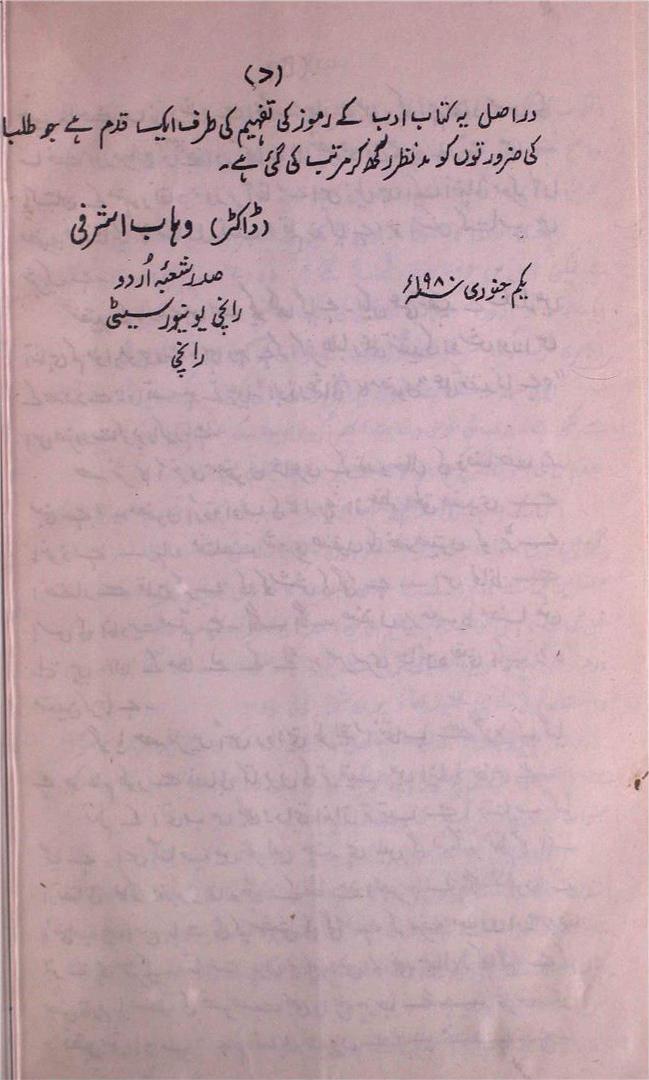 (د)
در اصل یہ کتاب ادب کے رموز کی تفہیم کی طرف ایک قدم ہے جو طلبا
کی ضرورتوں کو مدنظر رکھ کر مرتب کی گئی ہے۔
(ڈاکٹر) وہاب اشرفی
صدر شعبۂ اُردو
یکم جنوری ۱۹۸۰ء
رانچی یونیورسیٹی
رانچی